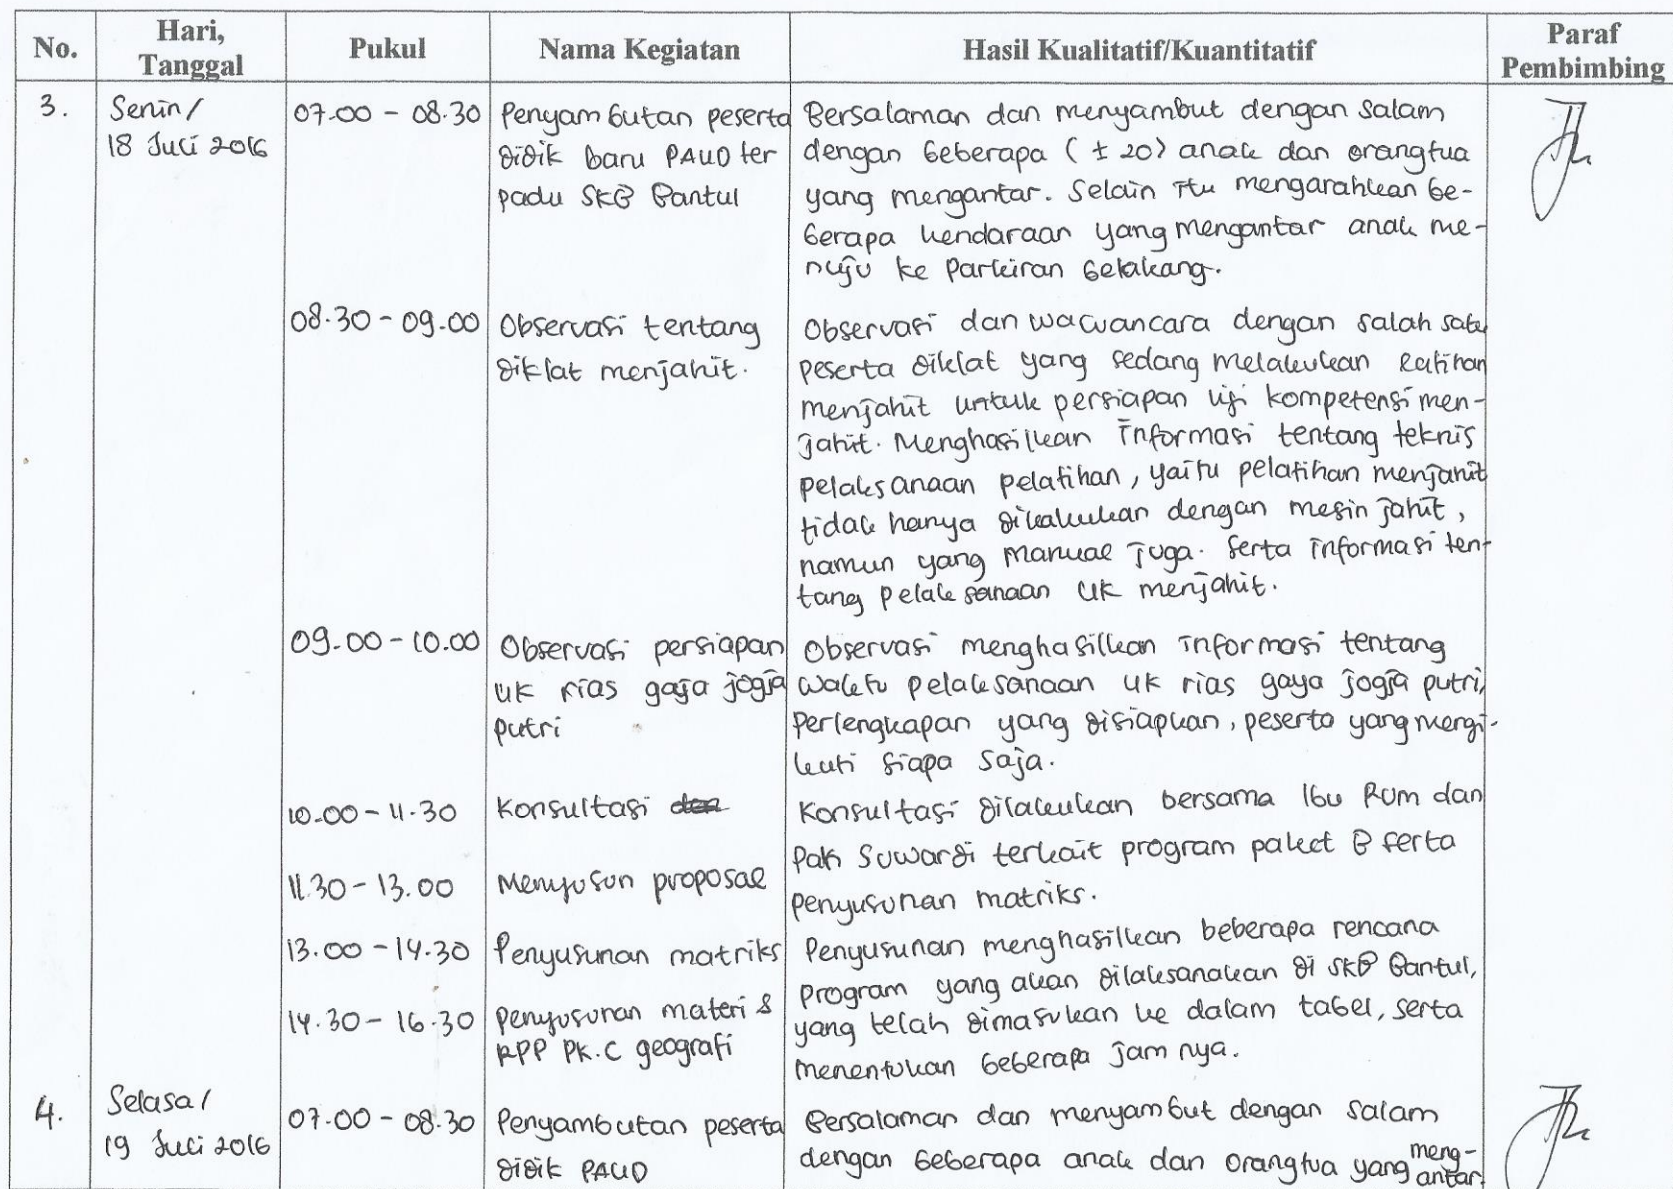 No.
Hari,
Tanggal
Pukul
Nama Kegiatan
Hasil Kualitatif/Kuantitatif
Paraf
Pembimbing
3.
Senin/
18 Juli 2016
07.00 - 08.30
Penyambutan peserta
didik baru PAUD ter
padu SKB Bantul
Bersalaman dan menyambut dengan salam
dengan beberapa (± 20) anak dan orangtua
yang mengantar. Selain itu mengarahkan be-
berapa kendaraan yang mengantar anak me-
nuju ke parkiran belakang.
08.30 - 09.00
Observasi tentang
diklat menjahit.
Observasi dan wawancara dengan salah satu
peserta diklat yang sedang melakukan latihan
menjahit untuk persiapan uji kompetensi men-
jahit. Menghasilkan informasi tentang teknis
pelaksanaan pelatihan, yaitu pelatihan menjahit
tidak hanya dilakukan dengan mesin jahit,
namun yang manual juga. Serta informasi ten-
tang pelaksanaan UK menjahit.
09.00 - 10.00
Observasi persiapan
UK rias gaja jogja
putri
Observasi menghasilkan informasi tentang
waktu pelaksanaan UK rias gaya jogja putri,
perlengkapan yang disiapkan, peserta yang mengi-
kuti siapa saja.
10.00 - 11.30
Konsultasi dan
Konsultasi dilakukan bersama Ibu Rum dan
Pak Suwardi terkait program paket B serta
penyusunan matriks.
11.30 - 13.00
Menyusun proposal
13.00 - 14.30
Penyusunan matriks
Penyusunan menghasilkan beberapa rencana
program yang akan dilaksanakan di SKB Bantul,
yang telah dimasukan ke dalam tabel, serta
menentukan beberapa jam nya.
14.30 - 16.30
Penyusunan materi &
RPP PK.C geografi
4.
Selasa/
19 Juli 2016
07.00 - 08.30
Penyambutan peserta
didik PAUD
Bersalaman dan menyambut dengan salam
dengan beberapa anak dan orangtua yang meng-
antar